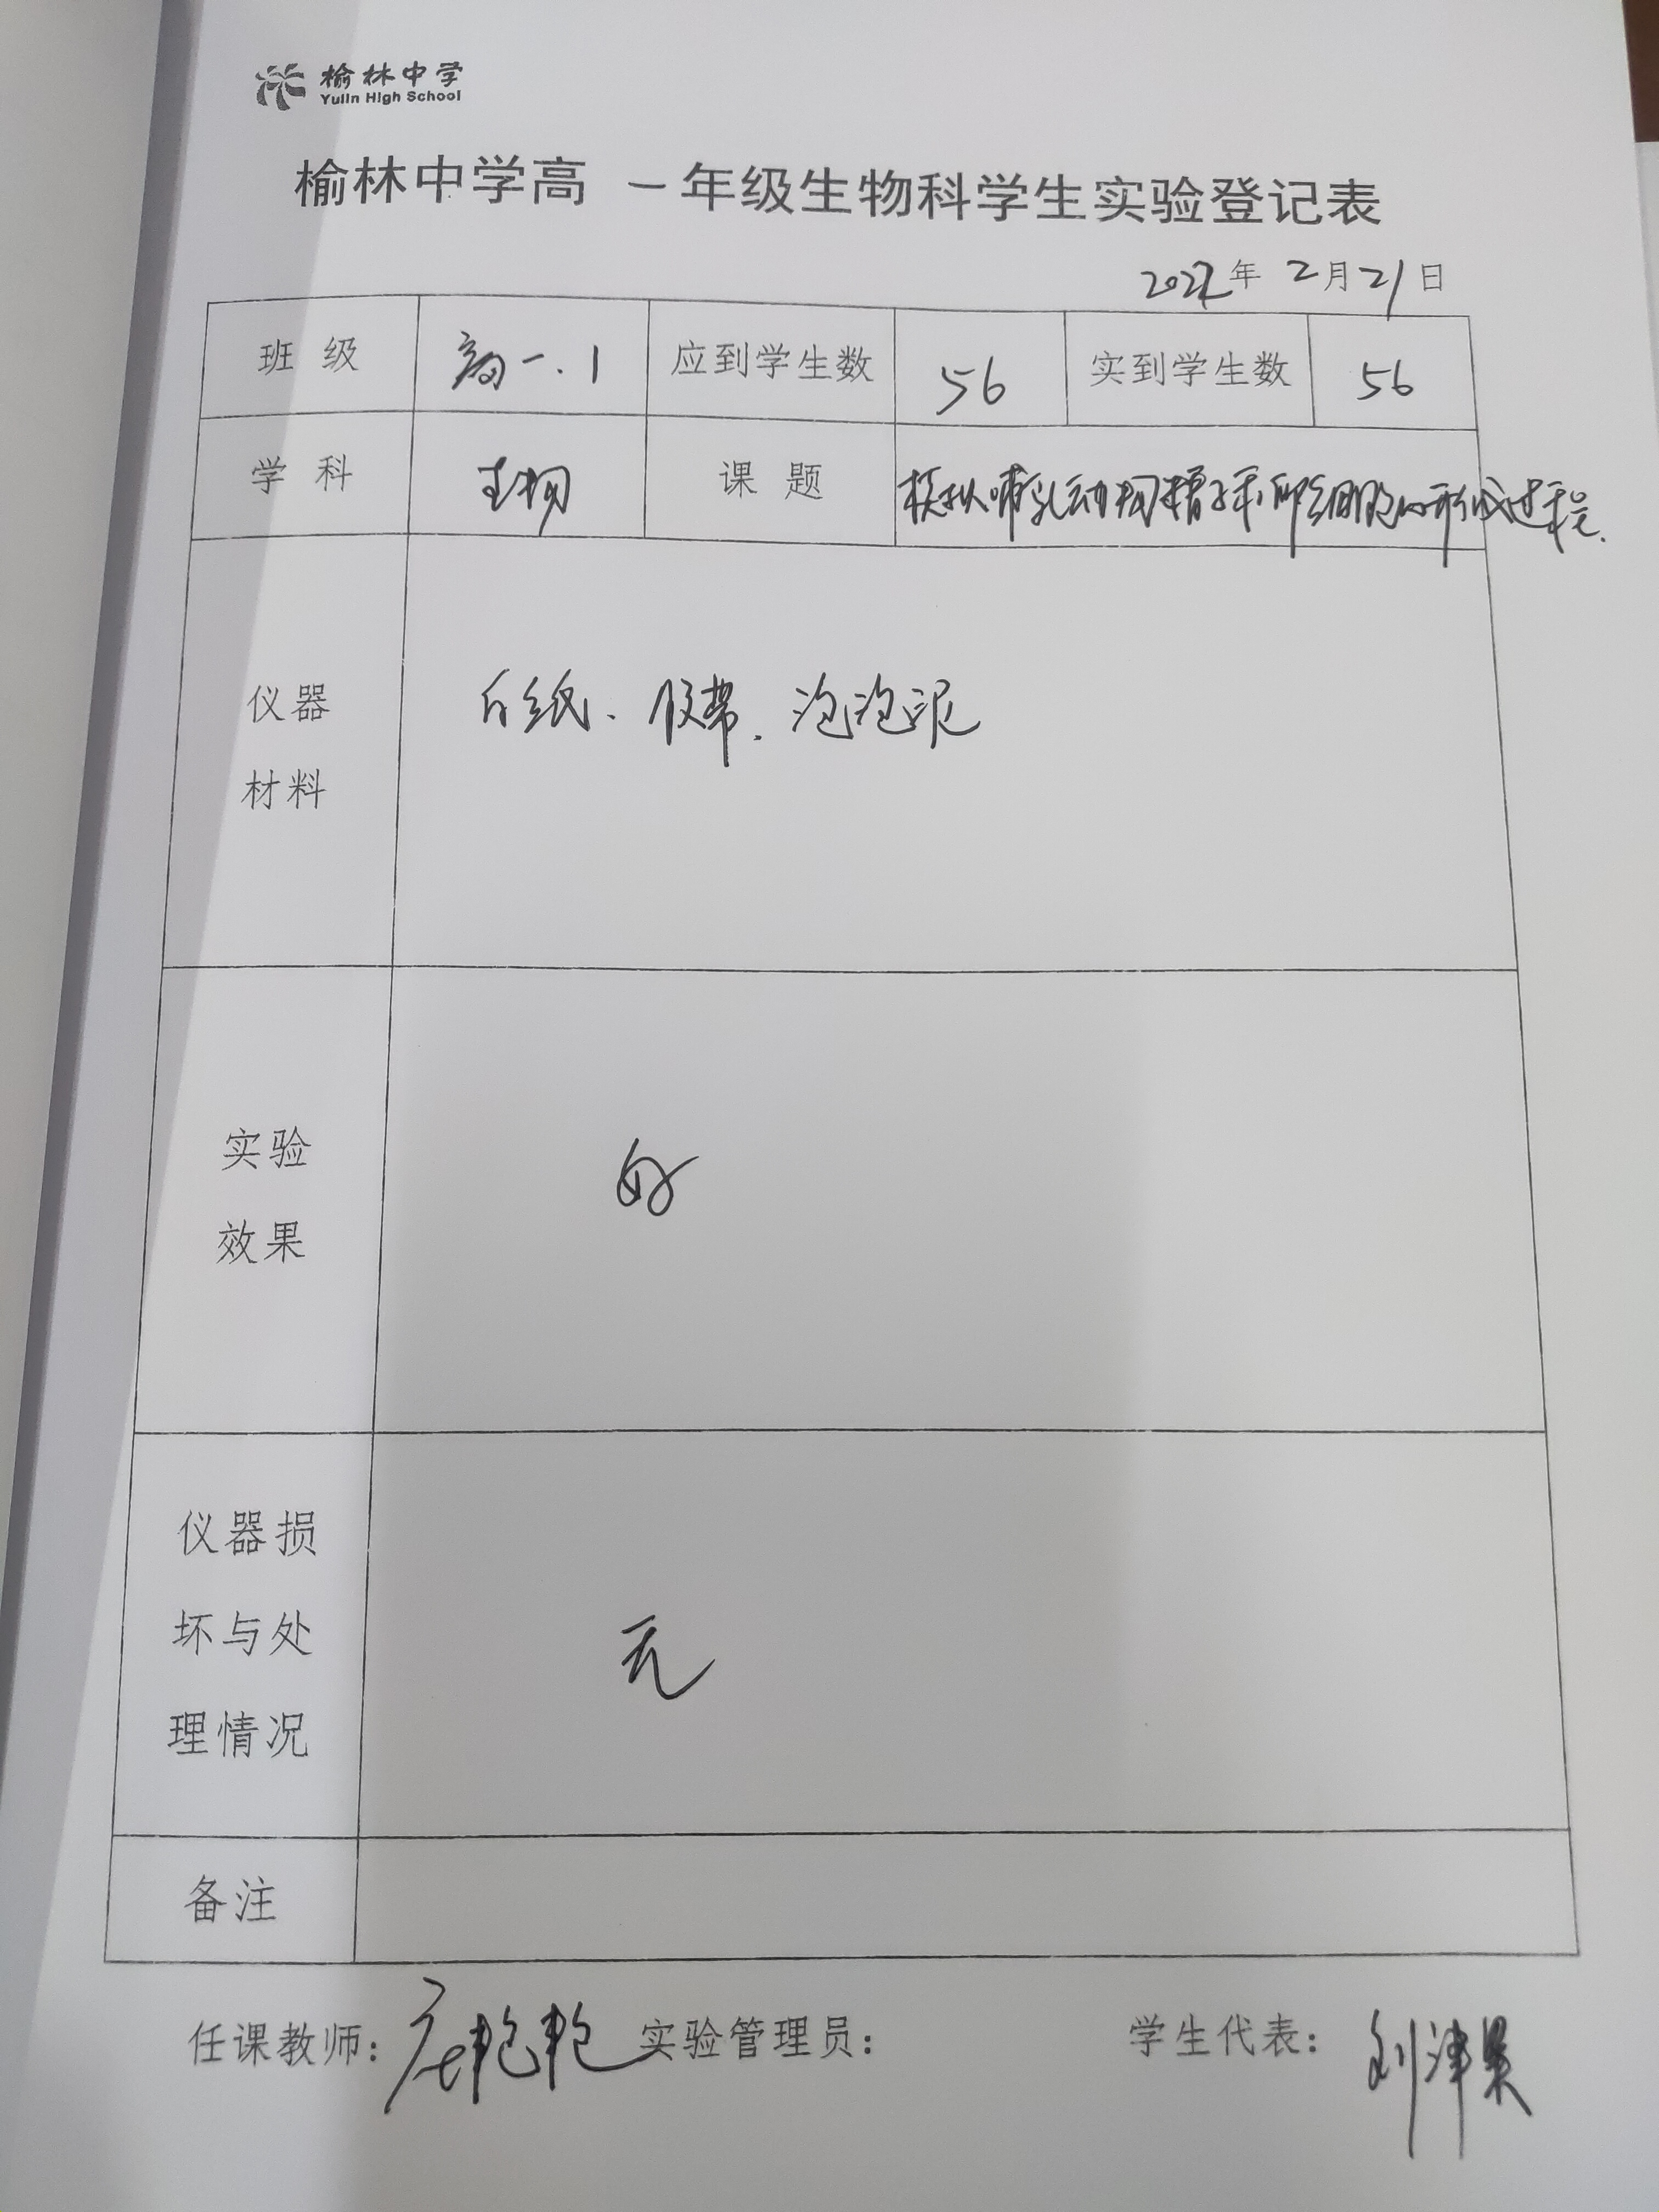 榆林中学
Yulin High School
榆林中学高 一年级生物科学生实验登记表
2022年 2月21日
班 级 高一.1 应到学生数 56 实到学生数 56
学 科 生物 课 题 模拟哺乳动物精子和卵细胞的形成过程.
仪器
材料
白纸、胶带、泡泡泥
实验
效果
好
仪器损
坏与处
理情况
无
备注
任课教师: 实验管理员: 学生代表: 刘津昊